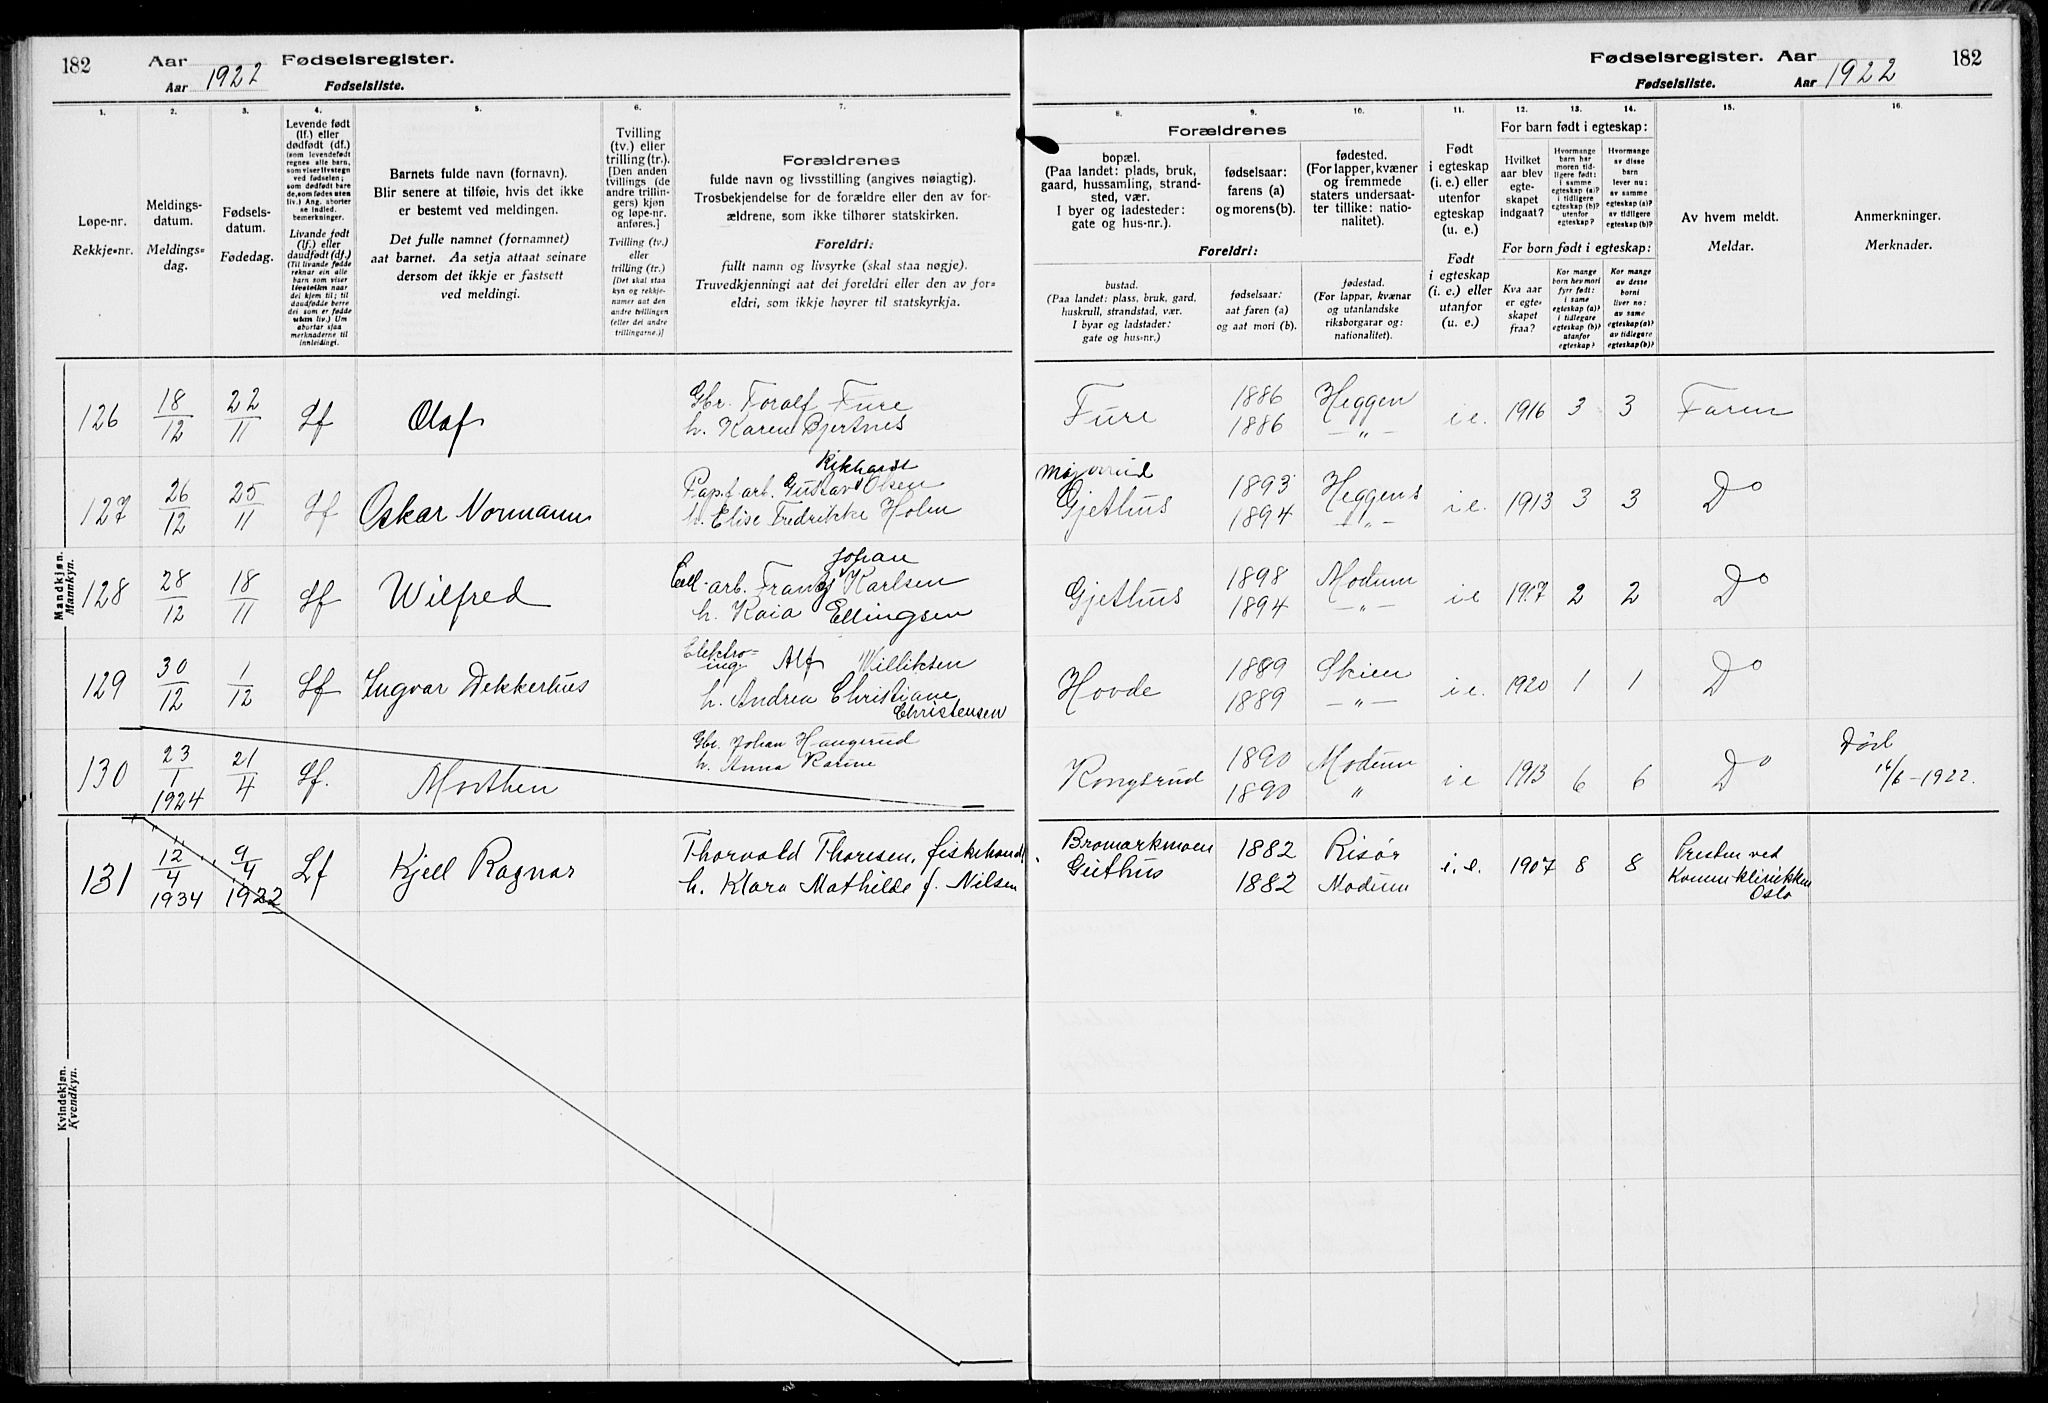 182 Aar 1922 Fødselsregister.
Aar Fødselsliste.
Fødselsregister. Aar 1922 182
Fødselsliste. Aar
1. 2. 3. 4. 5. 6. 7. 8. 9. 10. 11. 12. 13. 14. 15. 16.
Løpe-nr.
Rekkje-nr.
Meldings-
datum.
Meldings-
dag.
Fødsels-
datum.
Fødedag.
Levende født
(lf.) eller
dødfødt (df.)
(som levendefødt
regnes alle barn,
som viser livstegn
ved fødselen;
som dødfødt bare
de, som fødes uten
liv.) Ang. aborter
se indled.
bemerkninger.
Livande født
(lf.) eller
daudfødt (df.)
(Til livande fødde
reknar ein alle
barn som viser
livsteikn naar
dei kjem til; til
daudfødde berre
dei som er fødde
utan liv.) Um
abortar sjaa
merknaderne til
innleidingi.
Barnets fulde navn (fornavn).
Blir senere at tilføie, hvis det ikke
er bestemt ved meldingen.
Det fulle namnet (fornamnet)
aat barnet. Aa setja attaat seinare
dersom det ikkje er fastsett
ved meldingi.
Tvilling
(tv.) eller
trilling (tr.).
[Den anden
tvillings (de
andre trillin-
gers) kjøn
og løpe-nr.
anføres.]
Tvilling (tv.)
eller
trilling (tr.)
[Det skal staa
kyn og rekkje-
namer aat den
andre tvillingen
(eller dei andre
trillingarne.)]
Forældrenes
fulde navn og livsstilling (angives nøiagtig).
Trosbekjendelse for de forældre eller den av for-
ældrene, som ikke tilhører statskirken.
Foreldri:
fullt namn og livsyrke (skal staa nøgje).
Truvedkjenningi aat dei foreldri eller den av for-
eldri, som ikkje høyrer til statskyrkja.
Forældrenes
bopæl.
(Paa landet: plads, bruk,
gaard, hussamling, strand-
sted, vær.
I byer og ladesteder:
gate og hus-nr.).
fødselsaar:
farens (a)
og morens (b).
fødested.
(For lapper, kvæner
og fremmede
staters undersaat-
ter tillike: natio-
nalitet).
Foreldri:
bustad.
(Paa landet: plass, bruk, gard,
huskrull, strandstad, vær.
I byar og ladstader:
gate og hus-nr.)
fødselsaar:
aat faren (a)
og aat mori (b).
fødestad.
(For lappar, kvænar
og utanlandske
riksborgarar og:
nationalitet).
Født
i egteskap
(i. e.) eller
utenfor
egteskap
(u. e.)
Født
i egteskap
(i. e.) eller
utanfor
(u. e.)
For barn født i egteskap:
Hvilket
aar blev
egte-
skapet
indgaat?
Hvormange
barn har
moren tid-
ligere født:
i samme
egteskap (a)?
i tidligere
egteskap (b)?
utenfor
egteskap?
Hvormange
av disse
barn
lever nu:
av samme
egteskap (a)?
av tidligere
egteskap (b)?
For born født i egteskap:
Kva aar
er egte-
skapet
fraa?
Kor mange
born hev mori
fyrr født:
i same
egteskap (a)?
i tidlegare
egteskap (b)?
utanfor
egteskap?
Kor mange
av desse
borni
liver no:
av same
egteskap (a)?
av tidlegare
egteskap (b)?
Av hvem meldt.
Meldar.
Anmerkninger.
Merknader.
Mandkjøn.
Mannkyn.
126 18/12 22/11 Lf Olaf Gbr. Toralf Fure
h. Karen Bjertnes
Fure 1886 1886 Heggen —"— i e. 1916 3 3 Faren
127 26/12 25/11 Lf Oskar Normann Papf. arb. Gustav Rikhardt Olsen
h. Elise Fredrikke Holm
Gjethus 1893 1894 Heggens —"— i e. 1913 3 3 Do
128 28/12 18/11 Lf Wilfred arb. Frantz Johan Karlsen
h. Kaia Ellingsen
Gjethus 1898 1894 Modum —"— i e 1917 2 2 Do
129 30/12 1/12 Lf Ingvar Dekkerhus Elektro-
ing Alf Williksen
h. Andrea Christiane
Christensen
Hovde 1889 1889 Skien —"— i e. 1920 1 1 Do
130 23/1 1924 21/4 Lf. Morthen Gbr. Johan Haugerud
h. Anna Karine
Kongsrud 1890 1890 Modum " i e 1913 6 6 Do Døbt
16/6-1922.
Kvindekjøn.
Kvendkyn.
131 12/4 1934 9/4 1922 Lf Kjell Ragnar Thorvald Thoresen, fiskehandl.
h. Klara Mathilde f. Nilsen
Bromarkmoen
Geithus 1882 1882 Risør Modum i. e. 1907 8 8 Presten ved
Oslo